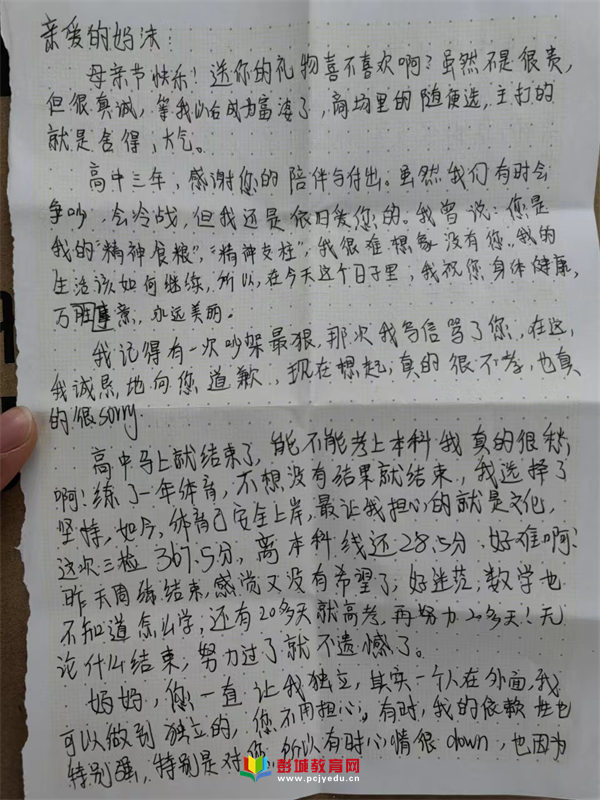 亲爱的妈沫：
母亲节快乐！送你的礼物喜不喜欢啊？虽然不是很贵，
但很真诚，等我以后成为富婆了，商场里的随便选，主打的
就是舍得，大气。
高中三年，感谢您的陪伴与付出。虽然我们有时会
争吵，会冷战，但我还是依旧爱您的。我曾说：您是
我的“精神食粮”，“精神支柱”，我很难想象没有您，我的
生活该如何继续，所以，在今天这个日子里，我祝您身体健康，
万事意，永远美丽。
我记得有一次吵架最狠，那次我写信骂了您，在这，
我诚恳地向您道歉，现在想起，真的很不孝，也真
的很sorry.
高中马上就结束了，能不能考上本科我真的很愁，
啊！练了一年体育，不想没有结果就结束，我选择了
坚持，如今，体育已安全上岸，最让我担心的就是文化，
这次三检367.5分，离本科线还28.5分，好难啊！
昨天周练结束，感觉又没有希望了，好迷茫；数学也
不知道怎么学，还有20多天就高考，再努力20多天！无
论什么结束，努力过了就不遗憾了。
妈妈，您一直让我独立，其实一个人在外面，我
可以做到独立的，您不用担心，有时，我的依赖性也
特别强，特别是对您，所以有时心情很down，也因为
彭城教育网
www.pcjyedu.com